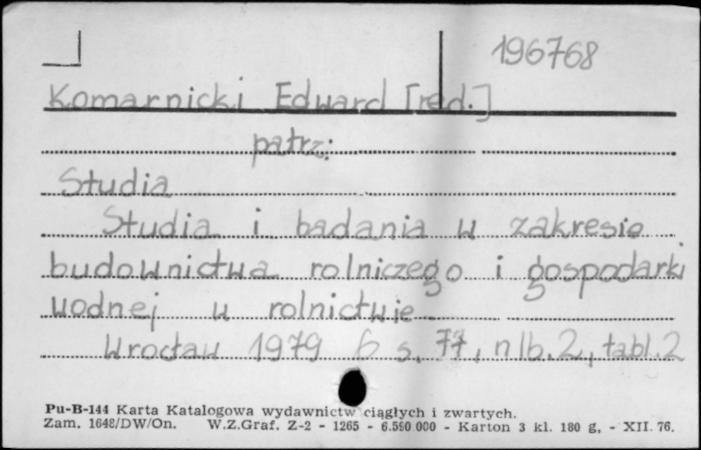 196768
Komarnicki Eduard [red.]
patrz:
Studia
Studia i badania w zakresie
budownictwa rolniczego i gospodarki
wodnej w rolnictwie
Wrocław 1979 6 s. 77, nlb. 2, tabl. 2
Pu-B-144 Karta Katalogowa wydawnictw ciągłych i zwartych.
Zam. 1648/DW/On. W.Z.Graf. Z-2 - 1265 - 6.550 000 - Karton 3 kl. 180 g, - XII. 76.